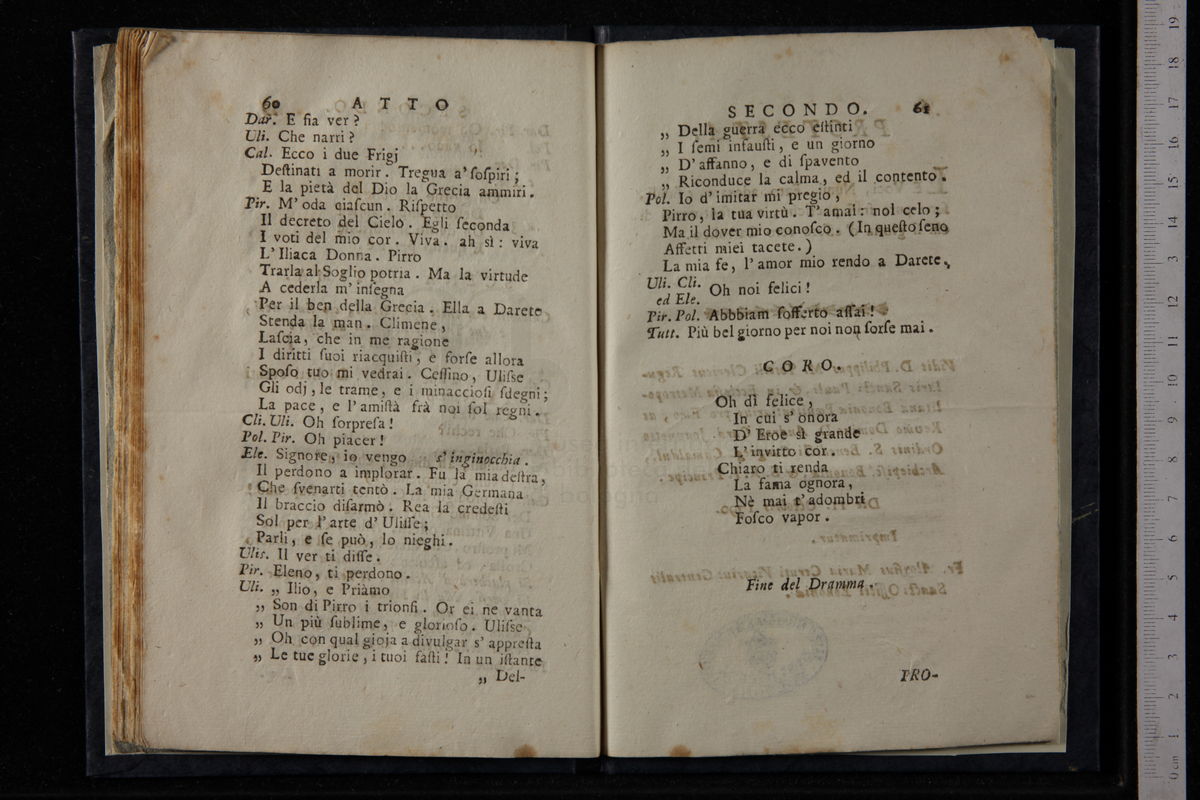 60 ATTO
Dar. E ſia ver?
Uli. Che narri?
Cal. Ecco i due Frigj
Deſtinati a morir. Tregua a' ſoſpiri;
E la pietà del Dio la Grecia ammiri.
Pir. M' oda ciaſcun. Riſpetto
Il decreto del Cielo. Egli ſeconda
I voti del mio cor. Viva. ah sì: viva
L' Iliaca Donna. Pirro
Trarla al Soglio potria. Ma la virtude
A cederla m' inſegna
Per il ben della Grecia. Ella a Darete
Stenda la man. Climene,
Laſcia, che in me ragione
I diritti ſuoi riacquiſti, e forſe allora
Spoſo tuo mi vedrai. Ceſſino, Uliſſe
Gli odj, le trame, e i minaccioſi ſdegni;
La pace, e l' amiſtà frà noi ſol regni.
Cli. Uli. Oh ſorpreſa!
Pol. Pir. Oh piacer!
Ele. Signore, io vengo s' inginocchia.
Il perdono a implorar. Fu la mia deſtra,
Che ſvenarti tentò. La mia Germana
Il braccio diſarmò. Rea la credeſti
Sol per l' arte d' Uliſſe;
Parli, e ſe può, lo nieghi.
Ulis. Il ver ti diſſe.
Pir. Eleno, ti perdono.
Uli. „ Ilio, e Priàmo
„ Son di Pirro i trionfi. Or ei ne vanta
„ Un più ſublime, e glorioſo. Uliſſe
„ Oh con qual gioja a divulgar s' appreſta
„ Le tue glorie, i tuoi faſti! In un iſtante
„ Del-
SECONDO. 61
„ Della guerra ecco eſtinti
„ I ſemi infauſti, e un giorno
„ D' affanno, e di ſpavento
„ Riconduce la calma, ed il contento.
Pol. Io d' imitar mi pregio,
Pirro, la tua virtù. T' amai: nol celo;
Ma il dover mio conoſco. (In queſto ſeno
Affetti miei tacete.)
La mia fe, l' amor mio rendo a Darete.
Uli. Cli. ed Ele. Oh noi felici!
Pir. Pol. Abbbiam ſofferto aſſai!
Tutt. Più bel giorno per noi non ſorſe mai.
CORO.
Oh dì felice,
In cui s' onora
D' Eroe sì grande
L' invitto cor.
Chiaro ti renda
La fama ognora,
Nè mai t' adombri
Foſco vapor.
Fine del Dramma.
PRO-
0 cm 1 2 3 4 5 6 7 8 9 10 11 12 13 14 15 16 17 18 19